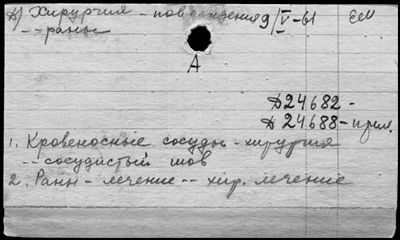 А) Хирургия - повреждения 9/V-61
- - раны
А
Д24682 -
Д24688 - прил.
1. Кровеносные сосуды - хирургия
- - сосудистый шов
2. Раны - лечение - - хир. лечение